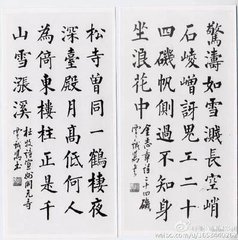 驚濤如雪濺長空峭
石崚嶒訝鬼工二十
四磯帆側過不知身
坐浪花中
金志章詩二十四磯
松寺曾同一鶴棲夜
深臺殿月高低何人
為倚東樓柱正是千
山雪漲溪
杜牧詩宣州開元寺